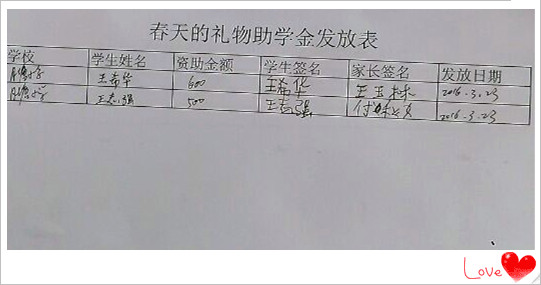 春天的礼物助学金发放表
学校 学生姓名 资助金额 学生签名 家长签名 发放日期
王希华 500 王希华 王玉林 2016.3.23
王志强 500 王志强 2016.3.23
Love